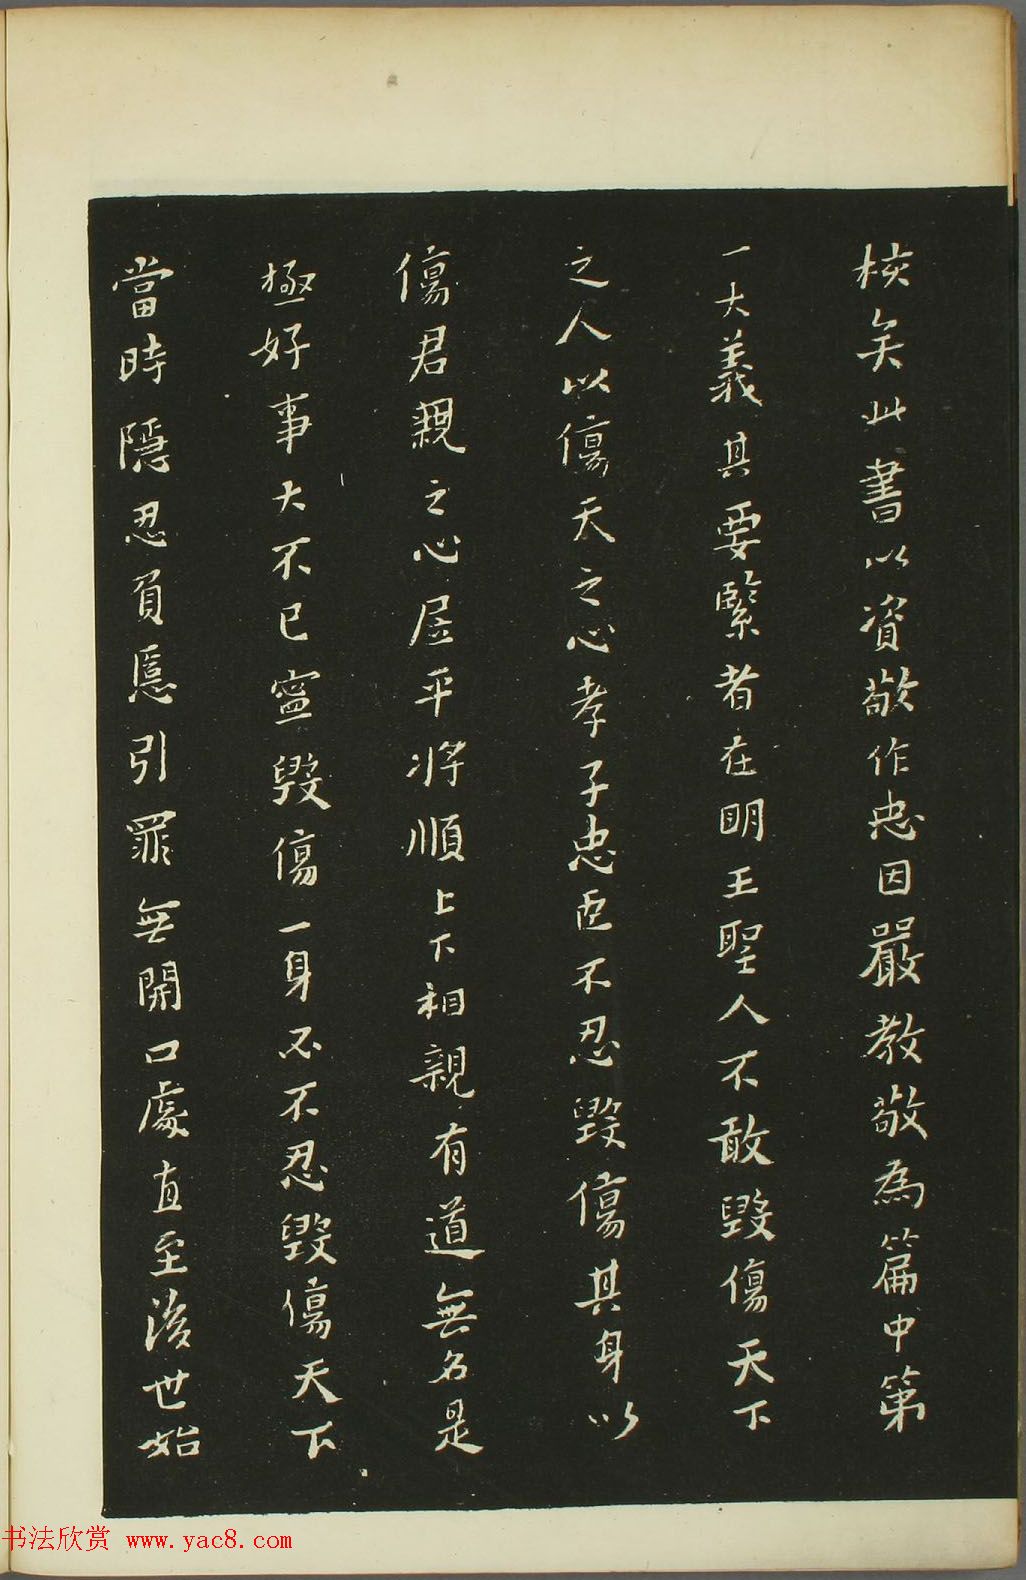 核矣此書以資敬作忠因嚴教敬為篇中第
一大義其要緊者在明王聖人不敢毀傷天下
之人以傷天之心孝子忠臣不忍毀傷其身以
傷君親之心屋平將順上下相親有道無名是
極好事大不已寧毀傷一身必不忍毀傷天下
當時隱忍負慝引罪無開口處直至後世始
书法欣赏 www.yac8.com